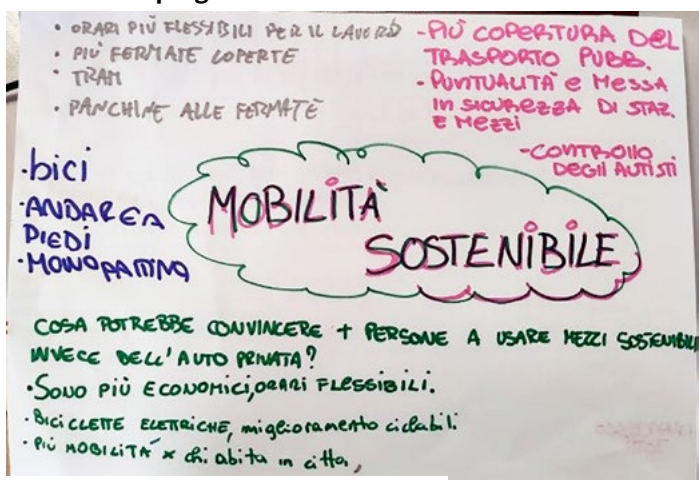 • ORARI PIÙ FLESSIBILI PER IL LAVORO
• PIÙ FERMATE COPERTE
• TRAM
• PANCHINE ALLE FERMATE
- PIÙ COPERTURA DEL
TRASPORTO PUBB.
- PUNTUALITÀ e MESSA
In SICUREZZA DI STAZ.
E MEZZI
- CONTROLLO
DEGLI AUTISTI
• bici
• ANDARE A
PIEDI
• MONOPATTINO
MOBILITÀ
SOSTENIBILE
COSA POTREBBE CONVINCERE + PERSONE A USARE MEZZI SOSTENIBILI
INVECE DELL'AUTO PRIVATA?
• SONO PIÙ ECONOMICI, ORARI FLESSIBILI.
• BICICLETTE ELETTRICHE, miglioramento ciclabili
• PIÙ MOBILITÀ x chi abita in città,